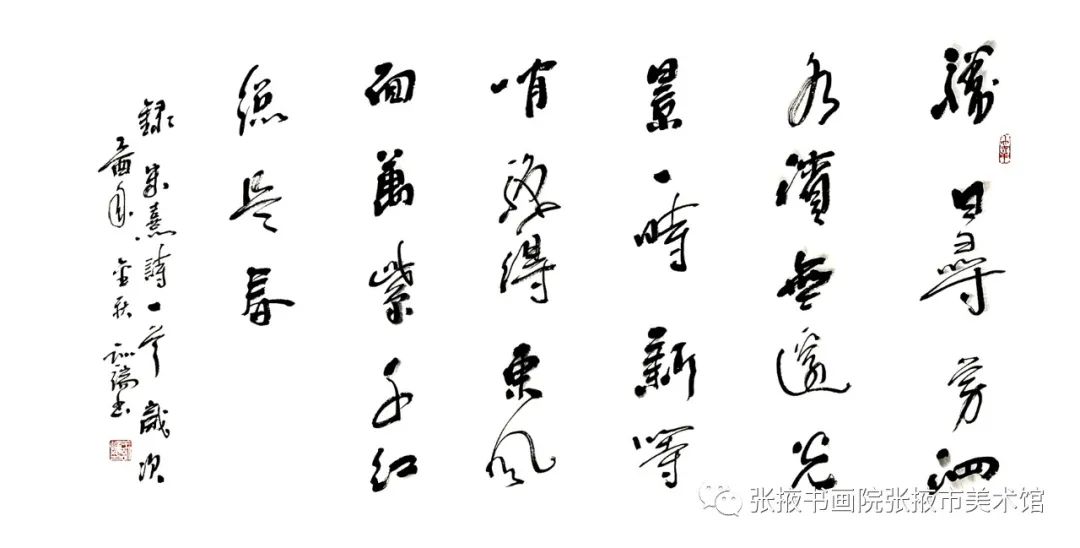 勝日尋芳泗
水濱無邊光
景一時新等
閒識得東風
面萬紫千紅
總是春
錄朱熹詩一首歲次
酉年金秋瑞書
张掖书画院张掖市美术馆